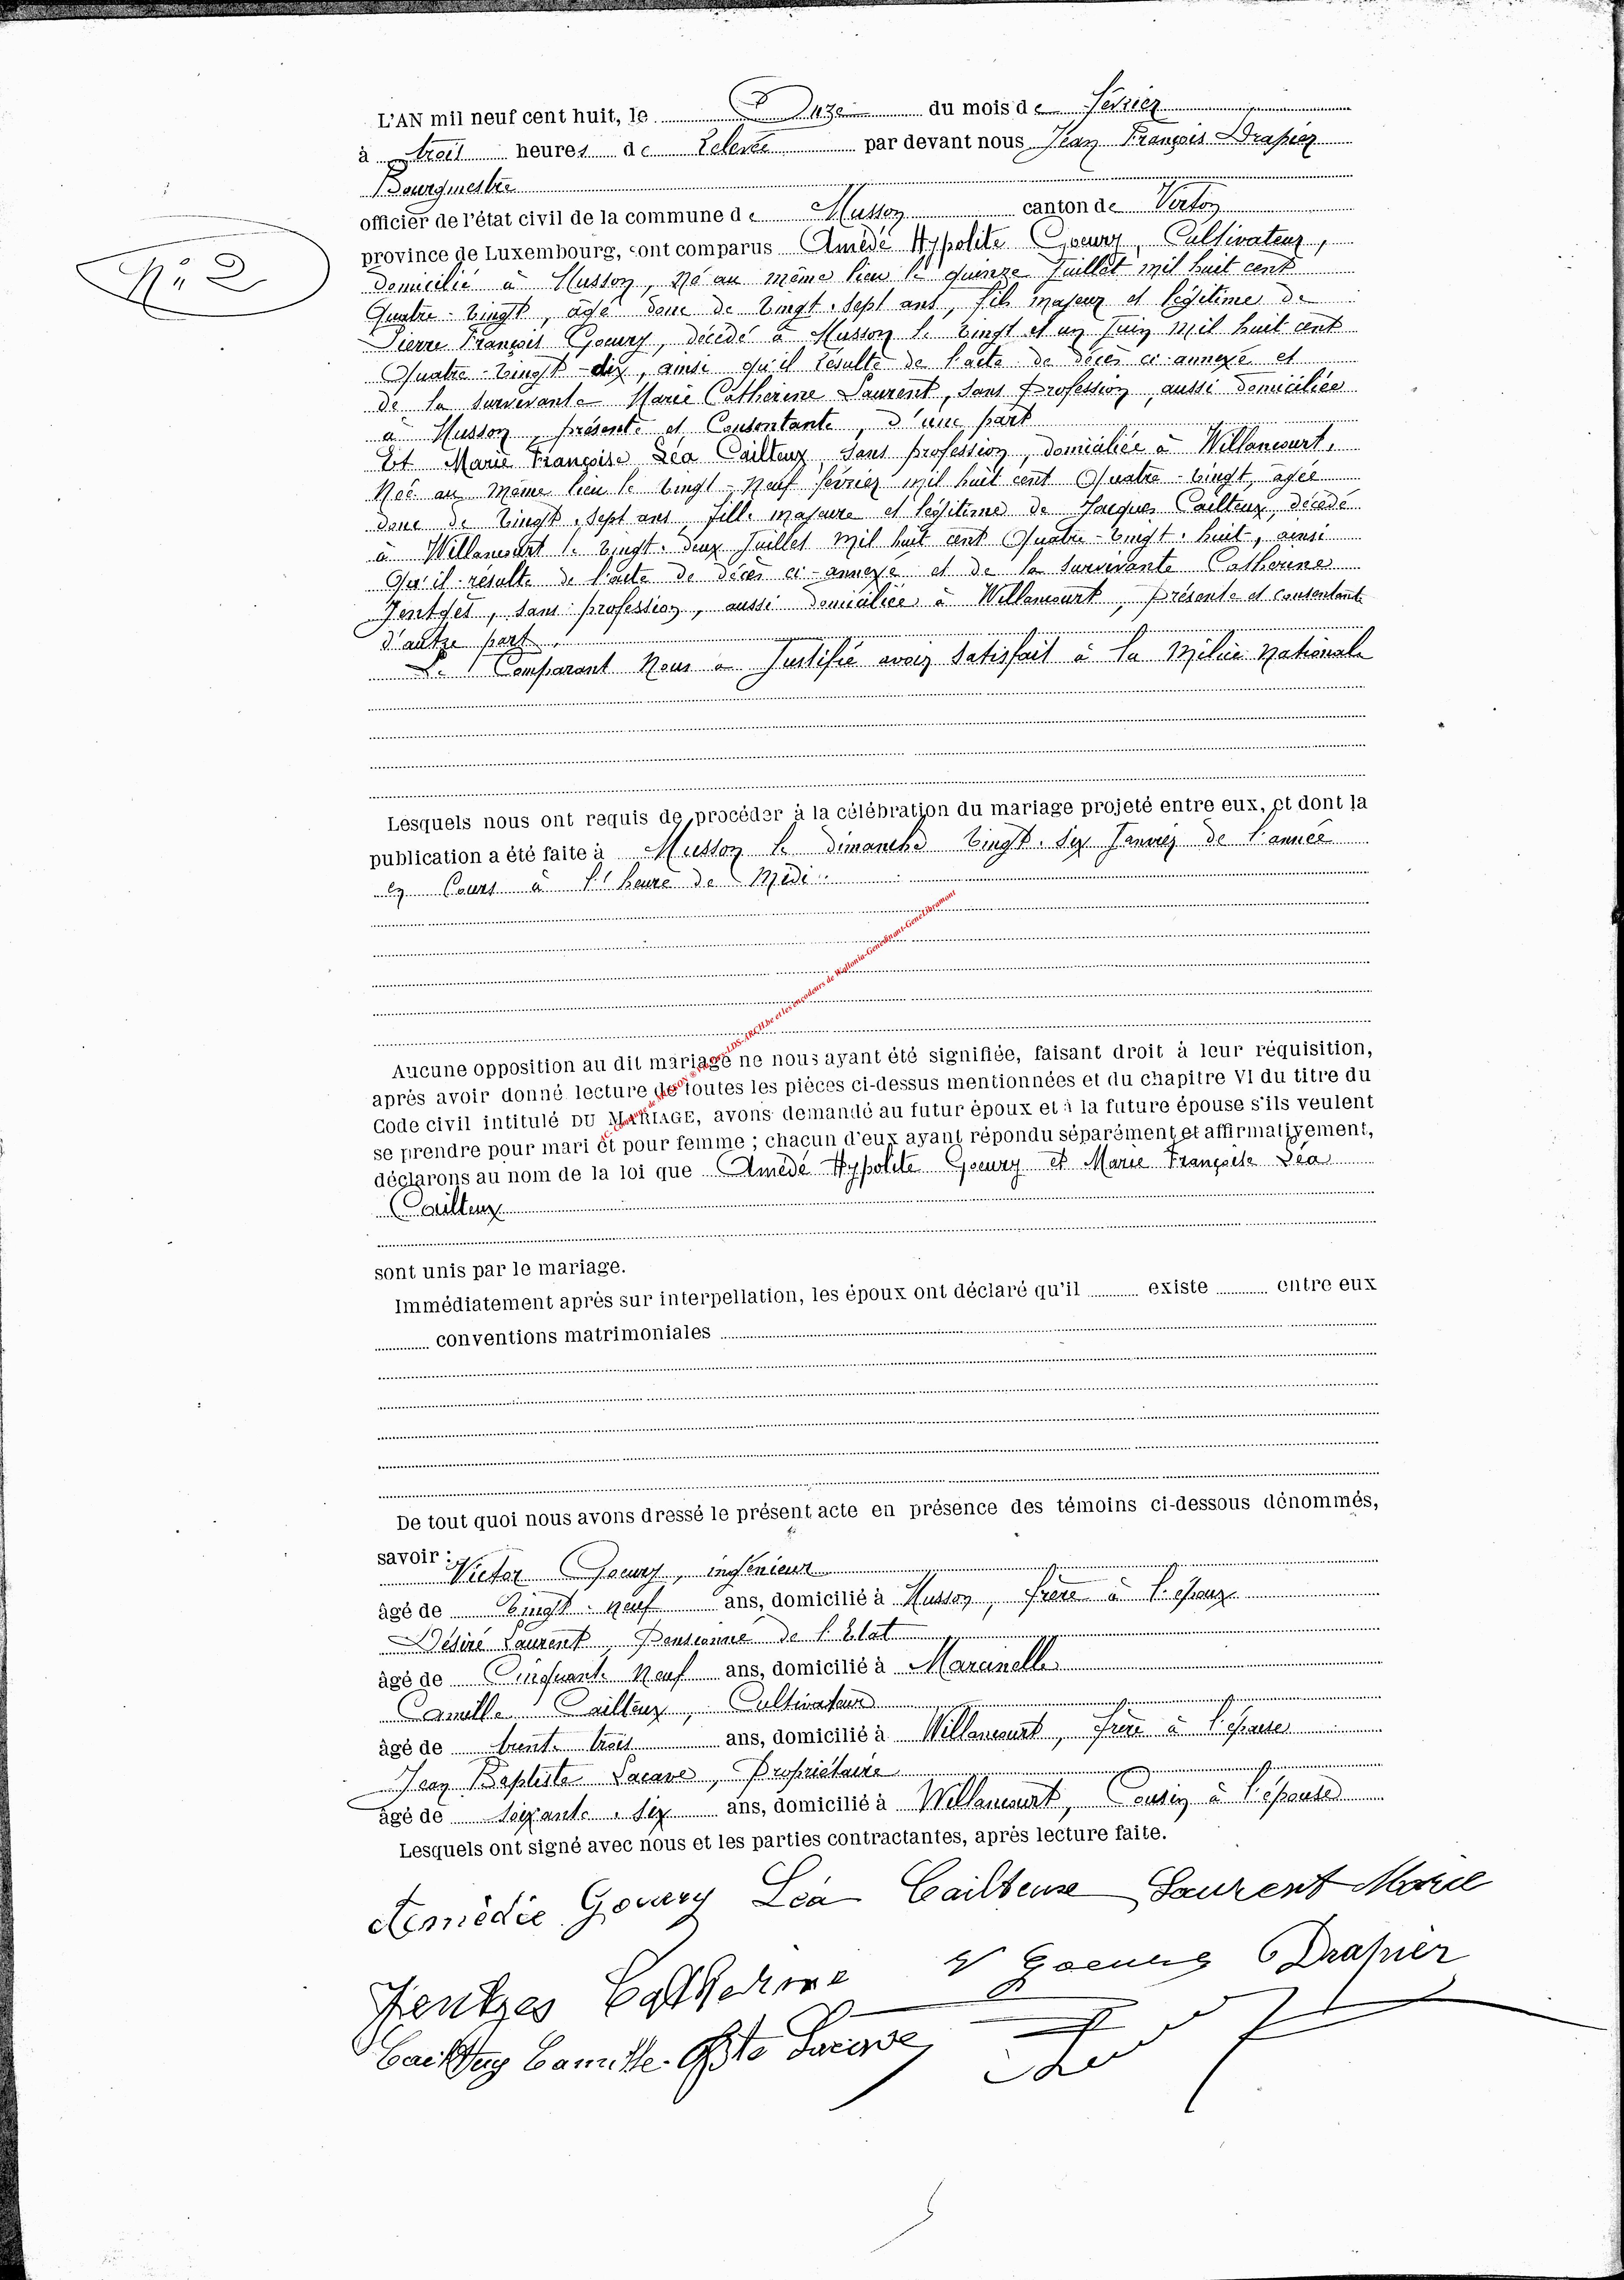 L'AN mil neuf cent huit, le Onze du mois de février
à trois heures de Relevée par devant nous Jean François Drapier
Bourgmestre
officier de l'état civil de la commune de Musson canton de Virton
province de Luxembourg, sont comparus Amédé Hypolite Goeury, Cultivateur,
domicilié à Musson, né au même lieu le quinze Juillet mil huit cent
Quatre-vingt, âgé donc de vingt-sept ans, fils majeur et légitime de
Pierre François Goeury, décédé à Musson le vingt et un Juin mil huit cent
Quatre-vingt-dix, ainsi qu'il résulte de l'acte de décès ci-annexé et
de la survivante Marie Catherine Laurent, sans profession, aussi domiciliée
à Musson, présente et Consentante, d'une part
Et Marie Françoise Léa Cailteux, sans profession, domiciliée à Willancourt,
Née au même lieu le vingt-neuf février mil huit cent Quatre-vingt, agée
donc de vingt-sept ans, fille majeure et légitime de Jacques Cailteux, décédé
à Willancourt le vingt-deux Juillet mil huit cent Quatre-vingt-huit, ainsi
Qu'il résulte de l'acte de décès ci-annexé et de la survivante Catherine
Jentges, sans profession, aussi domiciliée à Willancourt, présente et consentante
d'autre part.
Le Comparant Nous a Justifié avoir satisfait à la milice nationale
Lesquels nous ont requis de procéder à la célébration du mariage projeté entre eux, et dont la
publication a été faite à Musson le dimanche vingt-six Janvier de l'année
en Cours à l'heure de Midi.
Aucune opposition au dit mariage ne nous ayant été signifiée, faisant droit à leur réquisition,
après avoir donné lecture de toutes les pièces ci-dessus mentionnées et du chapitre VI du titre du
Code civil intitulé DU MARIAGE, avons demandé au futur époux et à la future épouse s'ils veulent
se prendre pour mari et pour femme ; chacun d'eux ayant répondu séparément et affirmativement,
déclarons au nom de la loi que Amédé Hypolite Goeury et Marie Françoise Léa
Cailteux
sont unis par le mariage.
Immédiatement après sur interpellation, les époux ont déclaré qu'il existe entre eux
conventions matrimoniales
De tout quoi nous avons dressé le présent acte en présence des témoins ci-dessous dénommés,
savoir : Victor Goeury, ingénieur
âgé de vingt-neuf ans, domicilié à Musson, frère à l'époux
Désiré Laurent, Pensionné de l'Etat
âgé de Cinquante Neuf ans, domicilié à Marcinelle
Camille Cailteux, Cultivateur
âgé de trente trois ans, domicilié à Willancourt, frère à l'épouse
Jean Baptiste Lacave, Propriétaire
âgé de soixante-six ans, domicilié à Willancourt, Cousin à l'épouse
Lesquels ont signé avec nous et les parties contractantes, après lecture faite.
Amédée Goeury Léa Cailteux Laurent Marie
Jentges Catherine V Goeury Drapier
Cailteux Camille Bte Lacave
N° 2